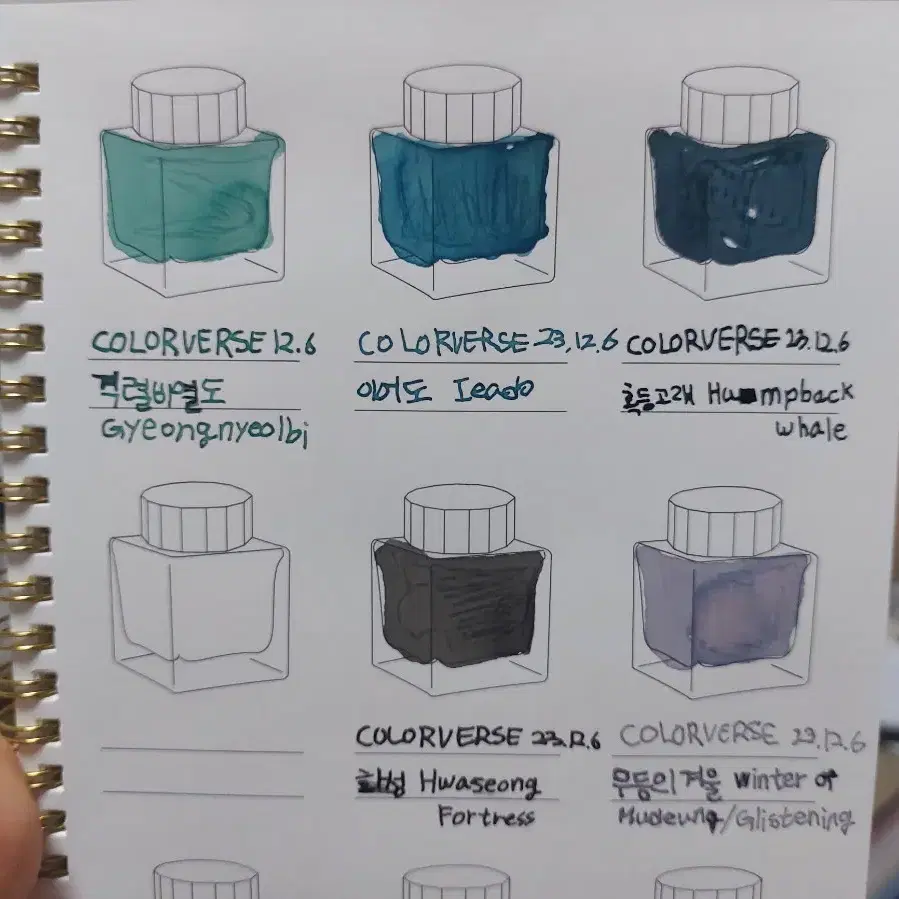 COLORVERSE 12.6
격렬비열도
Gyeongnyeolbi
COLORVERSE 23.12.6
이어도 Ieado
COLORVERSE 23.12.6
혹등고래 Humpback
whale
COLORVERSE 23.12.6
화성 Hwaseong
Fortress
COLORVERSE 23.12.6
무등의 겨울 winter of
Mudeung/Glistening